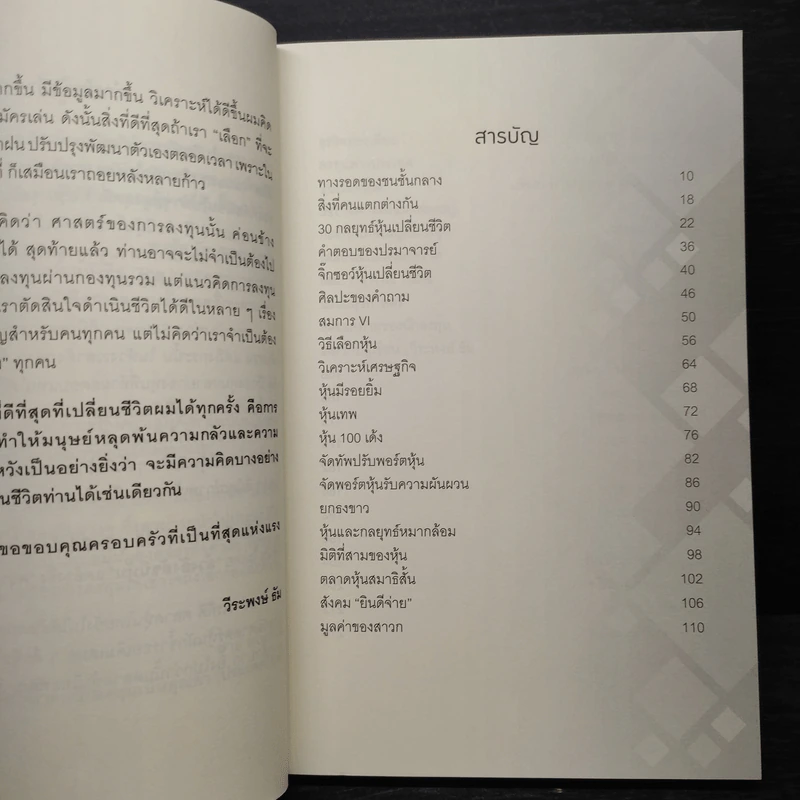 ากขึ้น มีข้อมูลมากขึ้น วิเคราะห์ได้ดีขึ้นผมคิด
มัครเล่น ดังนั้นสิ่งที่ดีที่สุดถ้าเรา “เลือก” ที่จะ
าฝน ปรับปรุงพัฒนาตัวเองตลอดเวลา เพราะใน
ก็เสมือนเราถอยหลังหลายก้าว
คิดว่า ศาสตร์ของการลงทุนนั้น ค่อนข้าง
ได้ สุดท้ายแล้ว ท่านอาจจะไม่จำเป็นต้องไป
ลงทุนผ่านกองทุนรวม แต่แนวคิดการลงทุน
ราตัดสินใจดำเนินชีวิตได้ดีในหลาย ๆ เรื่อง
ญสำหรับคนทุกคน แต่ไม่คิดว่าเราจำเป็นต้อง
” ทุกคน
ที่ดีที่สุดที่เปลี่ยนชีวิตผมได้ทุกครั้ง คือการ
ทำให้มนุษย์หลุดพ้นความกลัวและความ
หวังเป็นอย่างยิ่งว่า จะมีความคิดบางอย่าง
นชีวิตท่านได้เช่นเดียวกัน
ขอขอบคุณครอบครัวที่เป็นที่สุดแห่งแรง
วีระพงษ์ ธัม
สารบัญ
ทางรอดของชนชั้นกลาง 10
สิ่งที่คนแตกต่างกัน 18
30 กลยุทธ์หุ้นเปลี่ยนชีวิต 22
คำตอบของปรมาจารย์ 36
จิ๊กซอว์หุ้นเปลี่ยนชีวิต 40
ศิลปะของคำถาม 46
สมการ VI 50
วิธีเลือกหุ้น 56
วิเคราะห์เศรษฐกิจ 64
หุ้นมีรอยยิ้ม 68
หุ้นเทพ 72
หุ้น 100 เด้ง 76
จัดทัพปรับพอร์ตหุ้น 82
จัดพอร์ตหุ้นรับความผันผวน 86
ยกธงขาว 90
หุ้นและกลยุทธ์หมากล้อม 94
มิติที่สามของหุ้น 98
ตลาดหุ้นสมาธิสั้น 102
สังคม “ยินดีจ่าย” 106
มูลค่าของสาวก 110